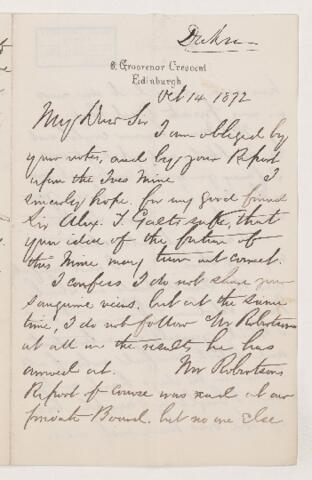 8 Grosvenor Crescent
Edinburgh
Oct 14 1872
My dear Sir
I am obliged by
your notes, and by your Report
upon the Ives Mine I
sincerely hope for my good friend
Sir Alex. T. Galts sake, that
your idea of the future of
this Mine may turn out correct.
I confess I do not share your
sanguine views, but at the same
time, I do not follow Mr Robertson
at all in the results he has
arrived at. Mr Robertsons
Report of course was read at our
private Board, but no one else